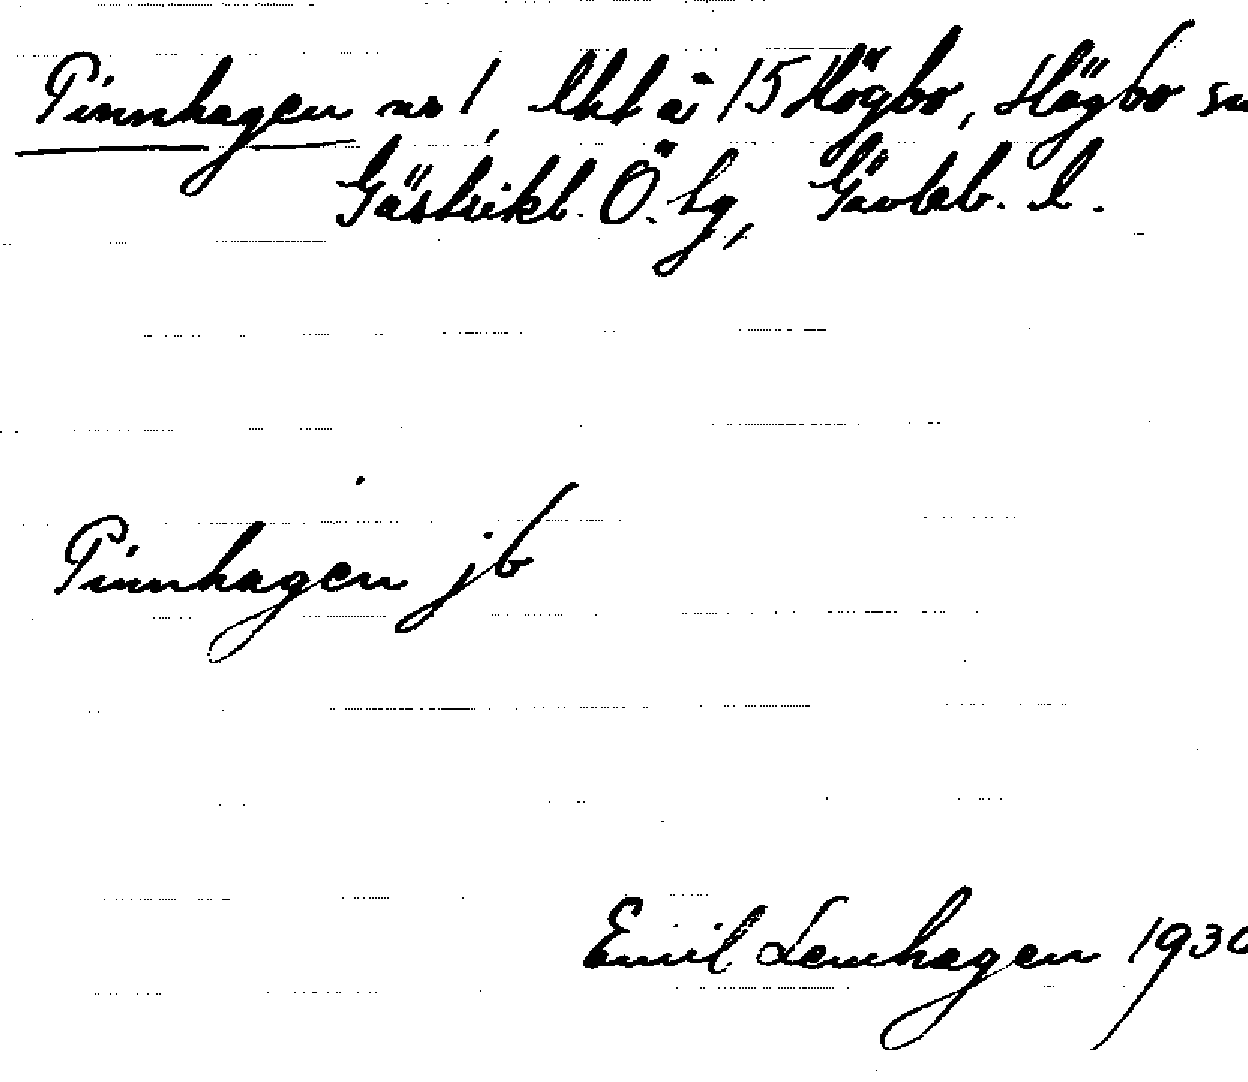 Pinnhagen no 1, lht å 15 Högbo, Högbo sn
Gästrikl. Ö. hg, Gävleb. l.
Pinnhagen jb
Emil Lenhagen 1930